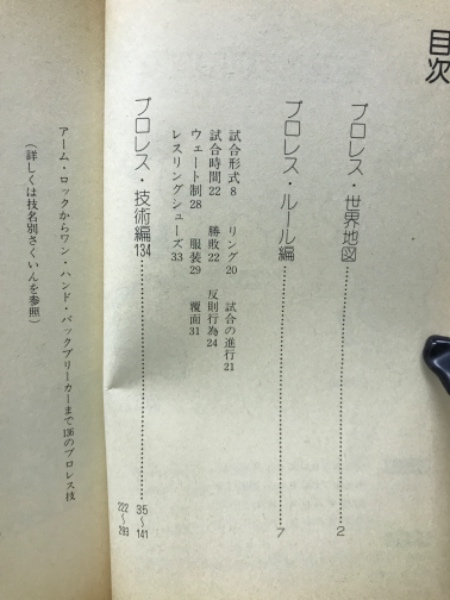 目次
プロレス・世界地図……2
プロレス・ルール編……7
試合形式8　リング20　試合の進行21
試合時間22　勝敗22　反則行為24
ウェート制28　服装29　覆面31
レスリングシューズ33
プロレス・技術編134……35〜141
222〜293
アーム・ロックからワン・ハンド・バックブリーカーまで136のプロレス技
(詳しくは技名別さくいんを参照)